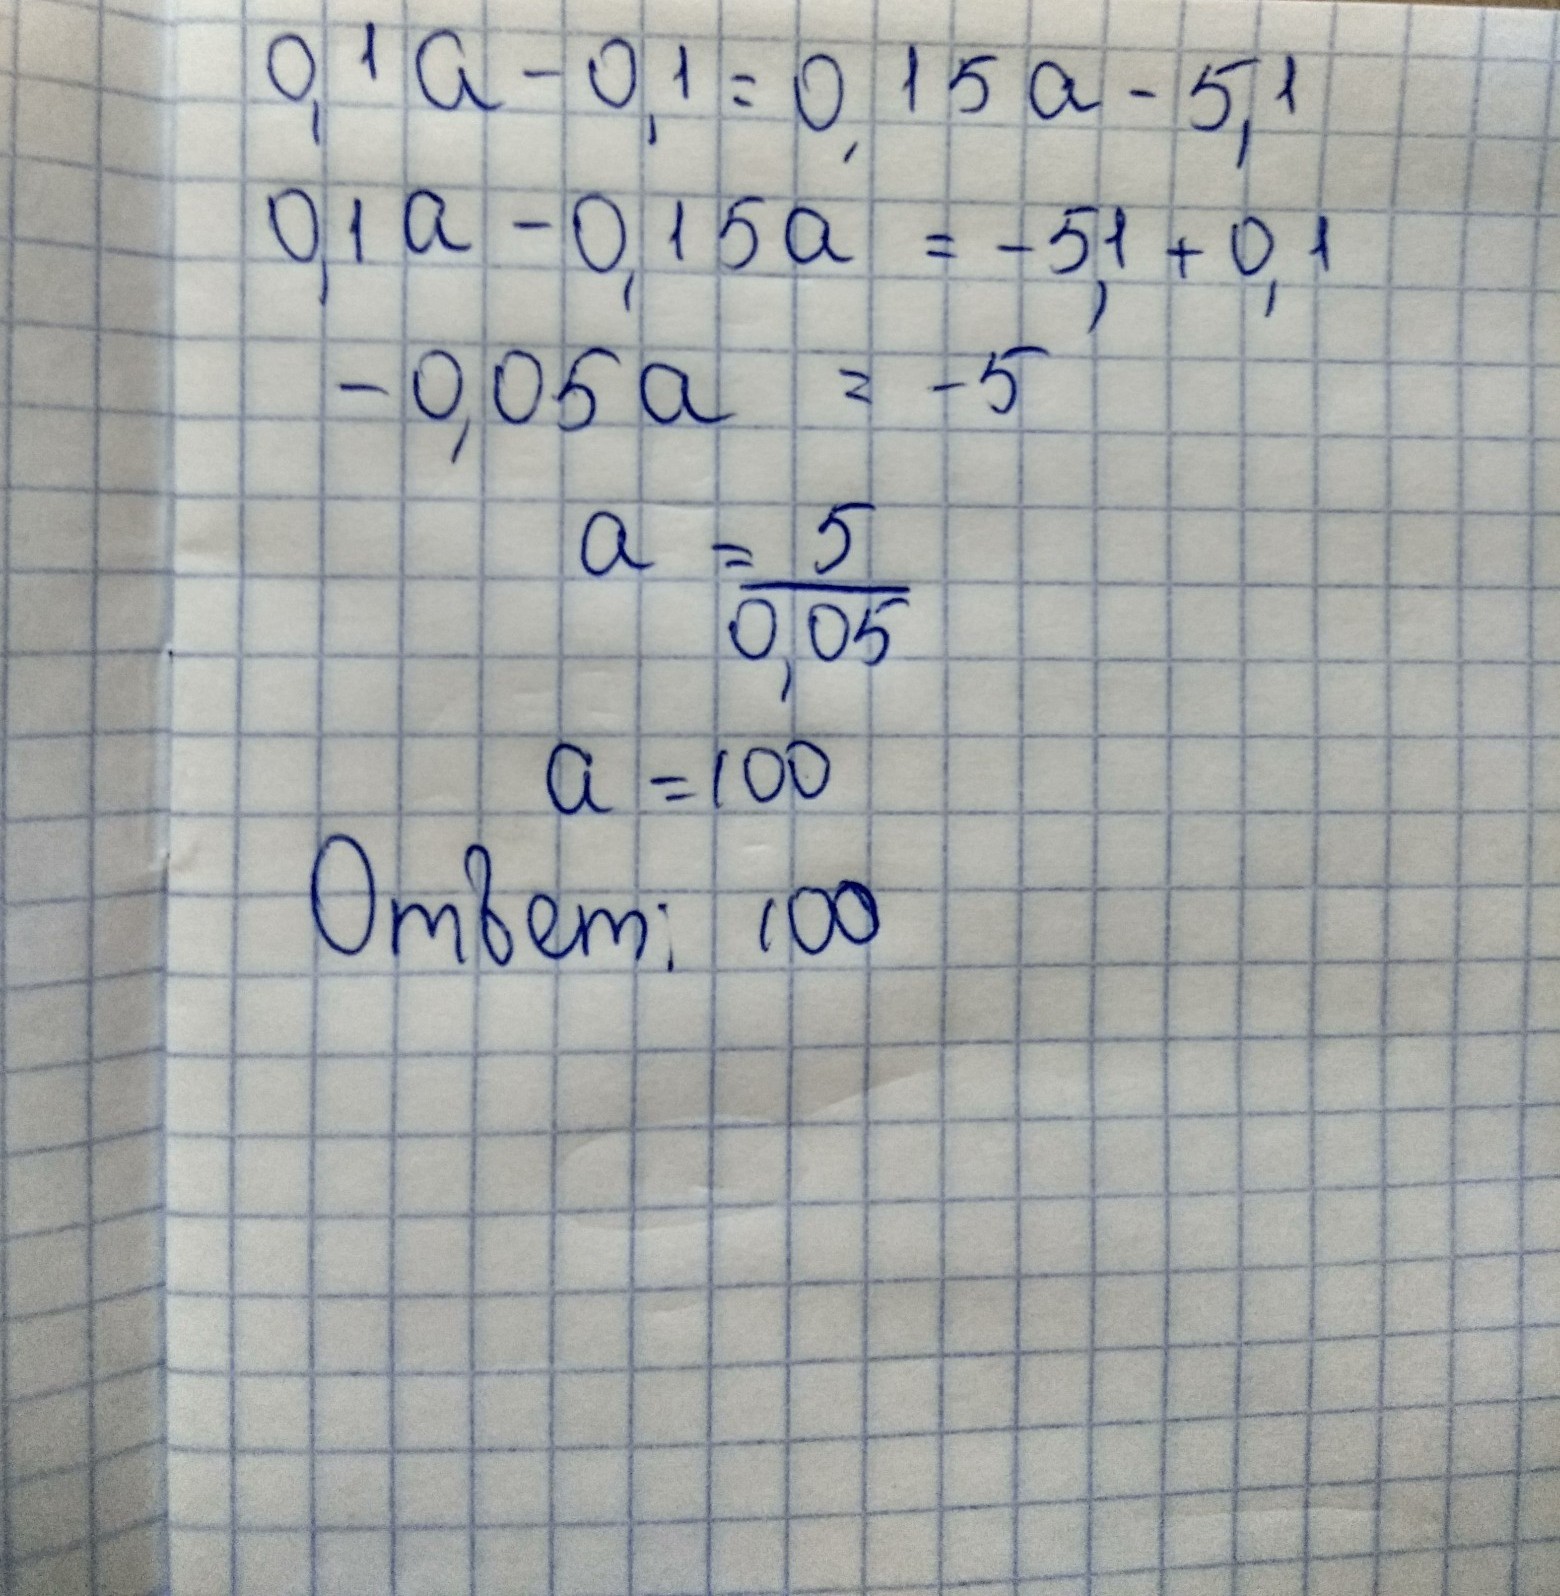 0,1a - 0,1 = 0,15a - 5,1
0,1a - 0,15a = -5,1 + 0,1
-0,05a = -5
a = 5
0,05
a = 100
Ответ: 100